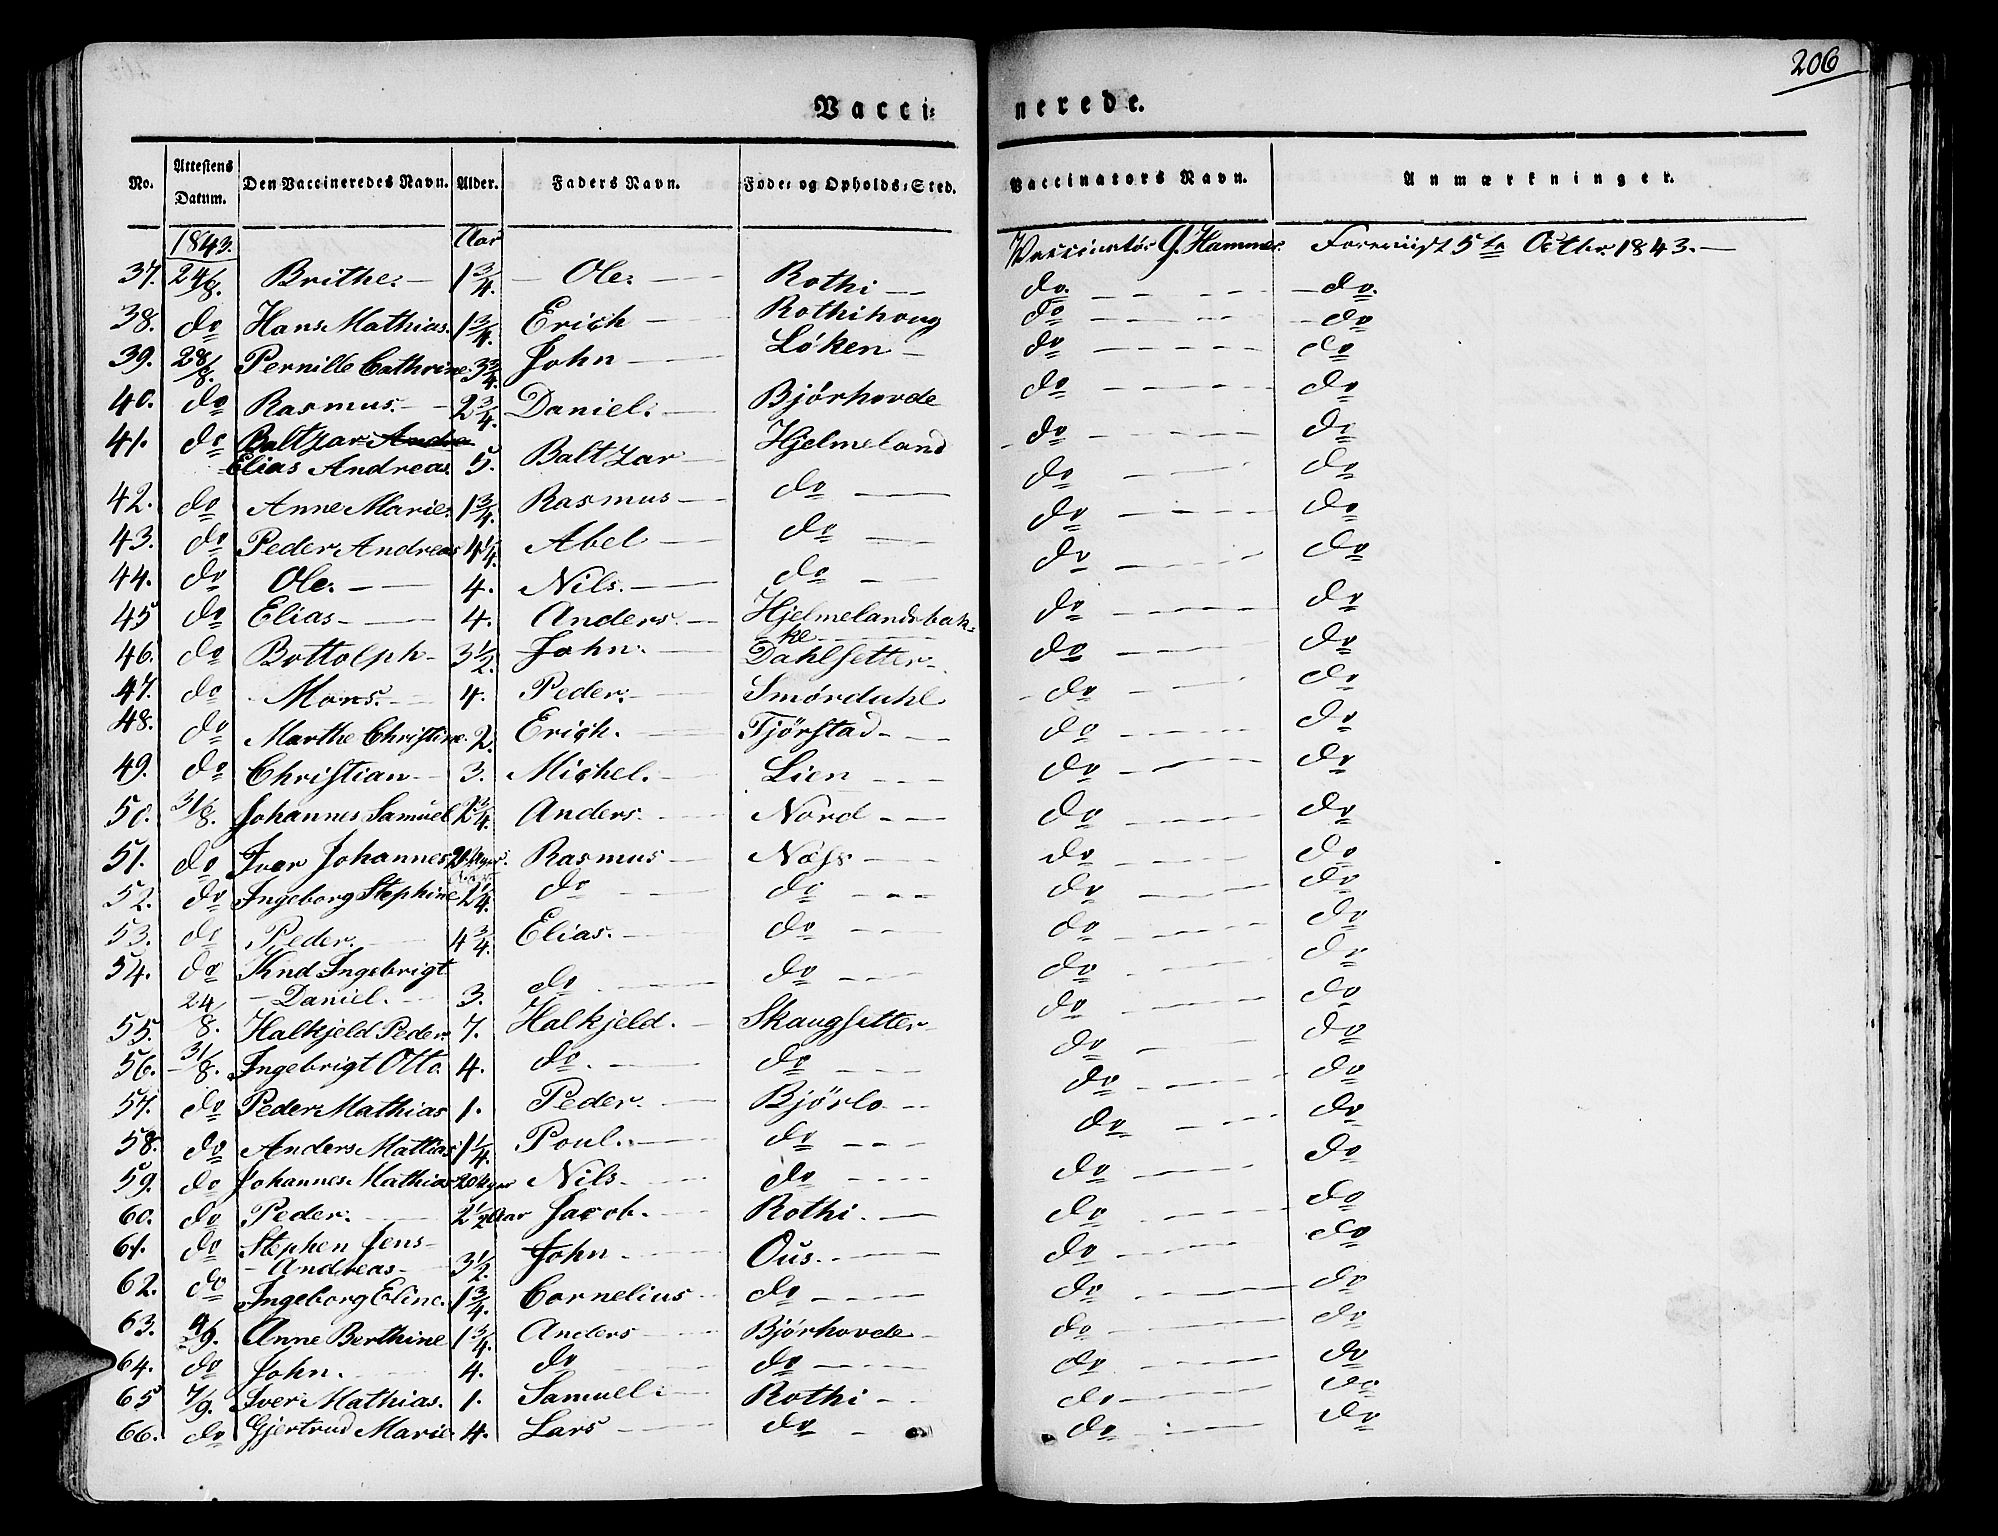 206
Vacci: nerede.
No. Attestens Datum. Den Vaccineredes Navn. Alder. Faders Navn. Føde: og Opholds: Sted. Vaccinators Navn. Anmærkninger.
1843. Aar Vaccinatør G. Hammer. Foreviist 5te Octbr. 1843. —
37. 24/8. Brithe. — 1 3/4. — Ole. — Rothi — do. — do.
38. do Hans Mathias. 1 3/4. Erich — Rothihoug do — do
39. 28/8. Pernille Cathrine. 3 3/4. John — Løken — do — do
40. do Rasmus. — 2 3/4. Daniel. — Bjørhovde do — do
41. do Baltzar Andrea Hjelmeland do — do
Elias Andreas 5. Baltzar — do — do
42. do Anne Marie. 1 3/4. Rasmus — do — do — do
43. do Peder Andreas 4 1/4. Abel — do — do — do
44. do Ole. — 4. Nils. — do — do — do
45 do Elias — 4. Anders. — Hjelmelandsbak-
ke —
46. do Bottolph — 3 1/2. John. — Dahlsetter — do — do
47. do Mons. — 4. Peder. — Smørdahl do — do
48. do Marthe Christine. 2. Erich. — Tjørstad — do — do
49. do Christian — 3. Michel. — Lien — do — do
50. 31/8. Johannes Samuel 2 3/4. Anders. — Nord — do — do
51. do Iver Johannes Uger. Rasmus — Næss — do — do
52. do Ingeborg Stephine 2 1/4. do — do — do — do
53. do Peder. — 4 3/4. Elias. — do — do — do
54. do Knd Ingebrigt
— Daniel. — 3. do — do — do — do
55. 24/8. Halkjeld Peder. 7. Halkjeld. — Skaugsetter — do — do
56. 31/8. Ingebrigt Otto. 4. do. — do — do — do
57. do Peder Mathias 1. Peder. — Bjørlo — do — do
58. do Anders Mathias 1 1/4. Poul. — do — do — do
59. do Johannes Mathias 20 Uger Nils. — do — do — do
60. do Peder. — 2 1/2 Aar Jacob. — Rothi. — do — do
61. do Stephen Jens —
— Andreas — 3 1/2. John — Ous. — do — do
62. do Ingeborg Eline. 1 3/4. Cornelius — do — do — do
63. 4/9. Anne Berthine 1 3/4. Anders — Bjørhovde — do — do
64. do John. — 4. do — do — do — do
65 7/9. Iver Mathias. 1. Samuel. — Rothi — do — do
66. do Gjertrud Marie 4. Lars — do — do — do